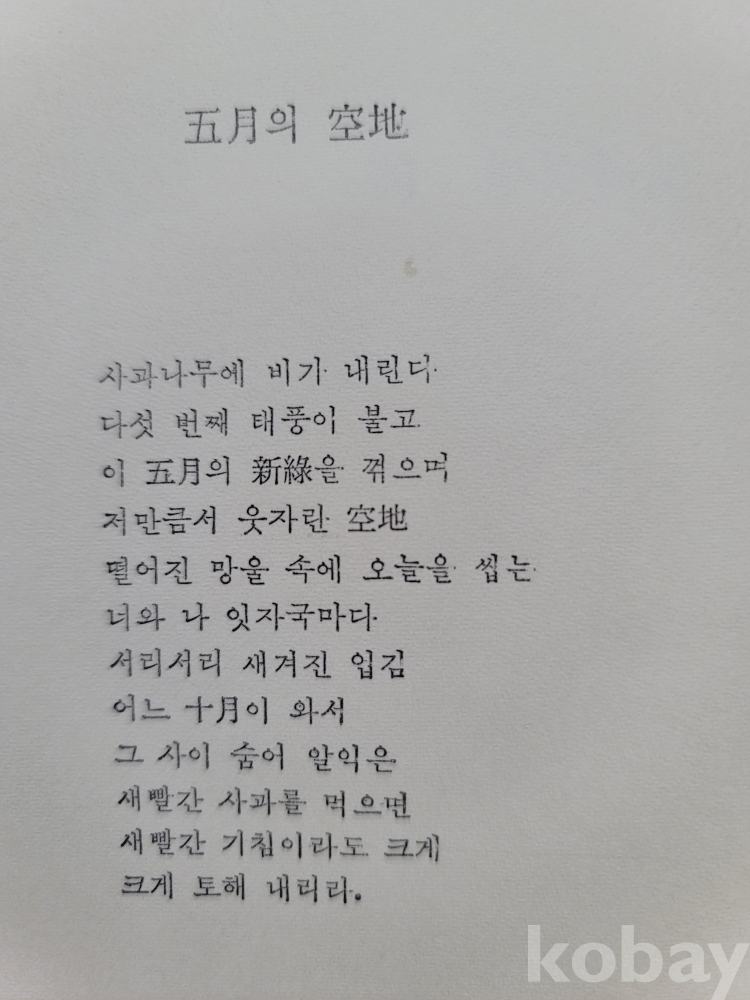 五月의 空地
사과나무에 비가 내린다
다섯 번째 태풍이 불고
이 五月의 新綠을 꺾으며
저만큼서 웃자란 空地
떨어진 망울 속에 오늘을 씹는
너와 나 잇자국마다
서리서리 새겨진 입김
어느 十月이 와서
그 사이 숨어 알익은
새빨간 사과를 먹으면
새빨간 기침이라도 크게
크게 토해 내리라.
kobay